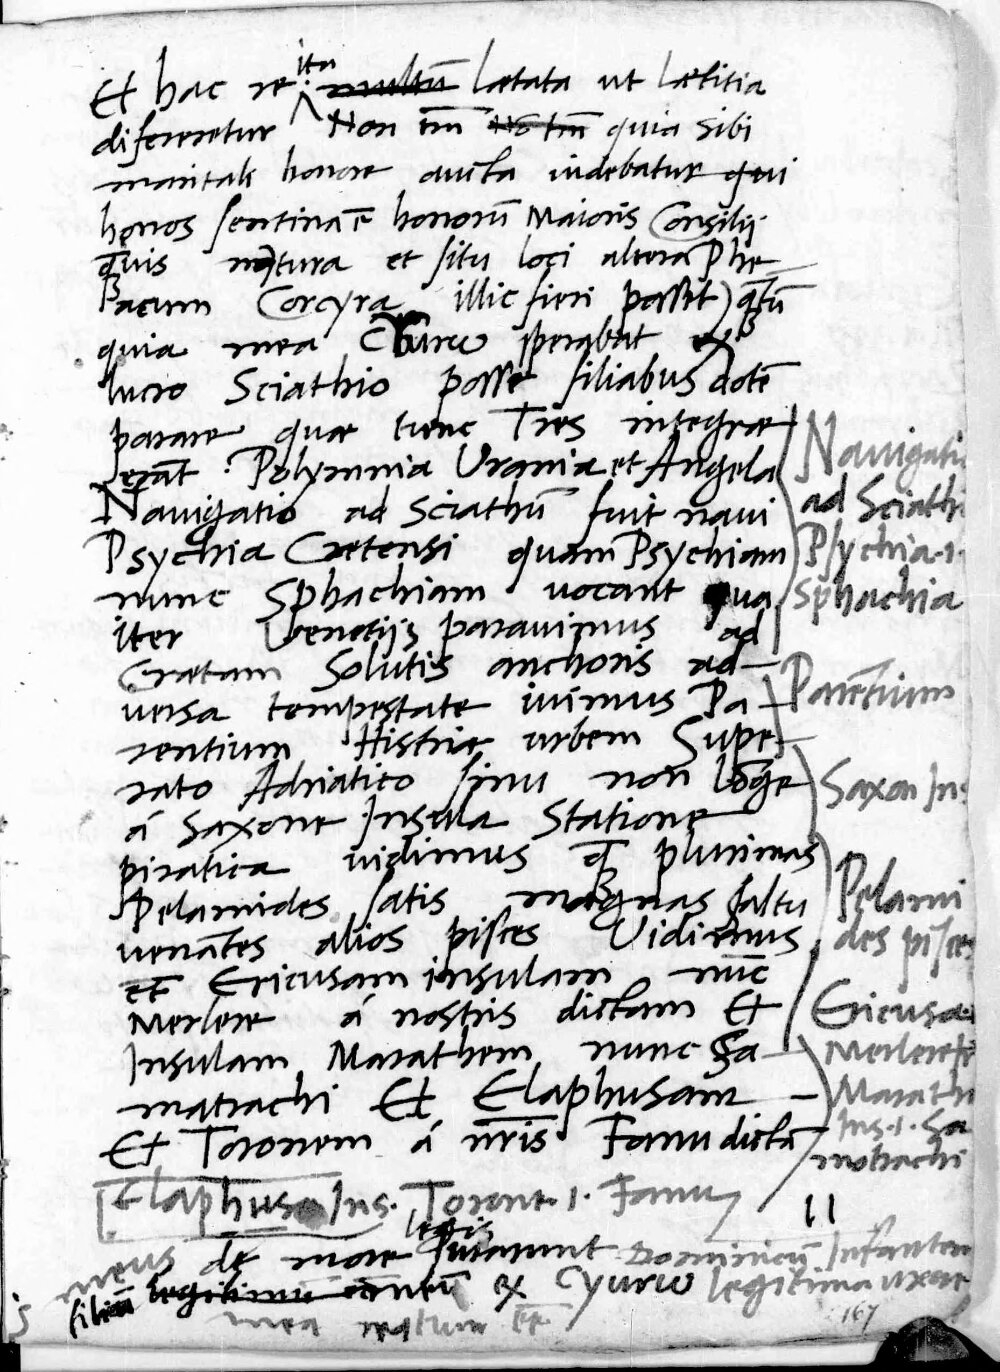 Et hac re ita multū lætata ut lætitia
difereretur Non tm̄ No tm̄ quia sibi
maritali honore aucta uidebatur qui
honos sentina ē honorū Maioris Consilij
q̄uis natura et situ loci altera Phe
acum Corcyra illic fieri posset) q̄tū
quia mea Cyurw sperabat ex
lucro Sciathio posse filiabus dotē
parare quæ tunc Tres integræ
erāt : Polymnia Urania et Angela
Nauigatio ad Sciathū fuit naui
Psychia Cretensi quam Psychiam
nunc Sphachiam vocant qua
iter Venetijs parauimus ad
Cretam Solutis anchoris ad-
uersa tempestate iuimus Pa-
rentium Histriæ urbem Supe-
rato Adriatico sinu non lōge
á Saxone Insula Statione
piratica uidimus plurimas
Pelamides satis magnas saltu
uenātes alios pisces Uidimus
et Ericusam insulam nūc
Merlere á nostris dictam Et
Insulam Marathem nunc Sa-
matrachi Et Elaphusam
Et Toronem á nr̄is Fanu dictā
Nauigati
ad Sciathi
Psychia .1.
Sphachia
Parentium
Saxon Ins
Pelami
des pisces
Ericusa
Merlere
Marath
Ins. 1. Sa
motrachi
Elaphusa Ins. Torone 1. Fanu
11
legis
meus de more iurarunt Dominicū Infantem
filium legitimū ex Cyurw legitima uxore
mea natum
167